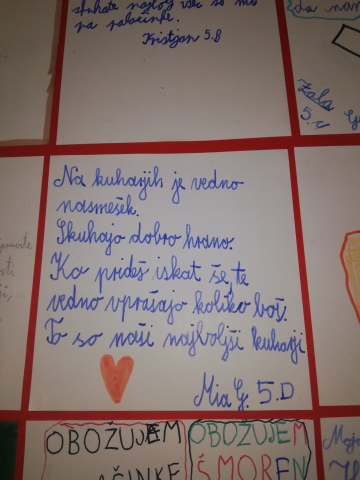 skuhate najbolj všeč so mi
pa palačinke.
Kristjan 5.B
da nam
Zala
5.c
Na kuharjih je vedno
nasmešek.
Skuhajo dobro hrano.
Ko prideš iskat še, te
vedno vprašajo koliko boš.
To so naši najboljši kuharji
Mia G. 5.D
OBOŽUJEM
OBOŽUJEM
ŠMOREN
Moja